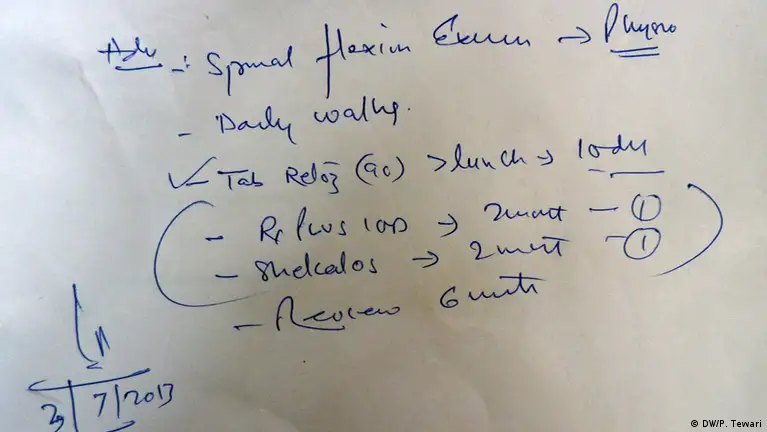 Adv -: Spinal flexion Exercise → Physio
- Daily walking.
✓- Tab Reloz (90) > lunch → 10 days
- plus → 2 mont - ①
- Shelcal OS → 2 mont - ①
- Review 6 mnts
3/7/2013
© DW/P. Tewari